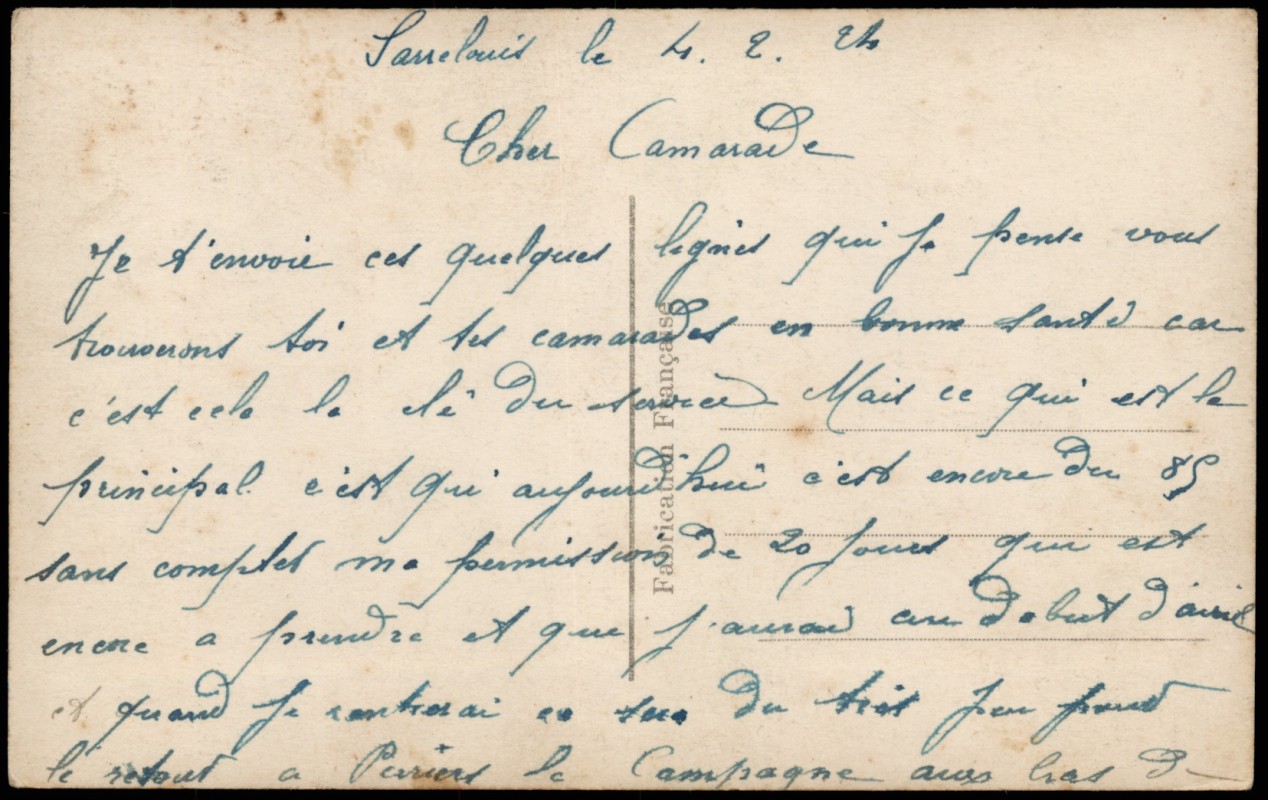 Sarrelouis le 4. 2. 24
Cher Camarade
Je t'envoie ces quelques legnies qui je pense vous
trouverons toi et tes camarades en bonne santé car
c'est cela la clé du service Mais ce qui est le
principal. c'est qu'aujourd'hui c'est encore du 85
sans comptes ma permission de 20 jours qui est
encore a prendre et que j'aurai au debut d'avril
et quand je rentrerai ce sera du très peu pour
le retour a Periers la Campagne aux bras de
Fabrication Française